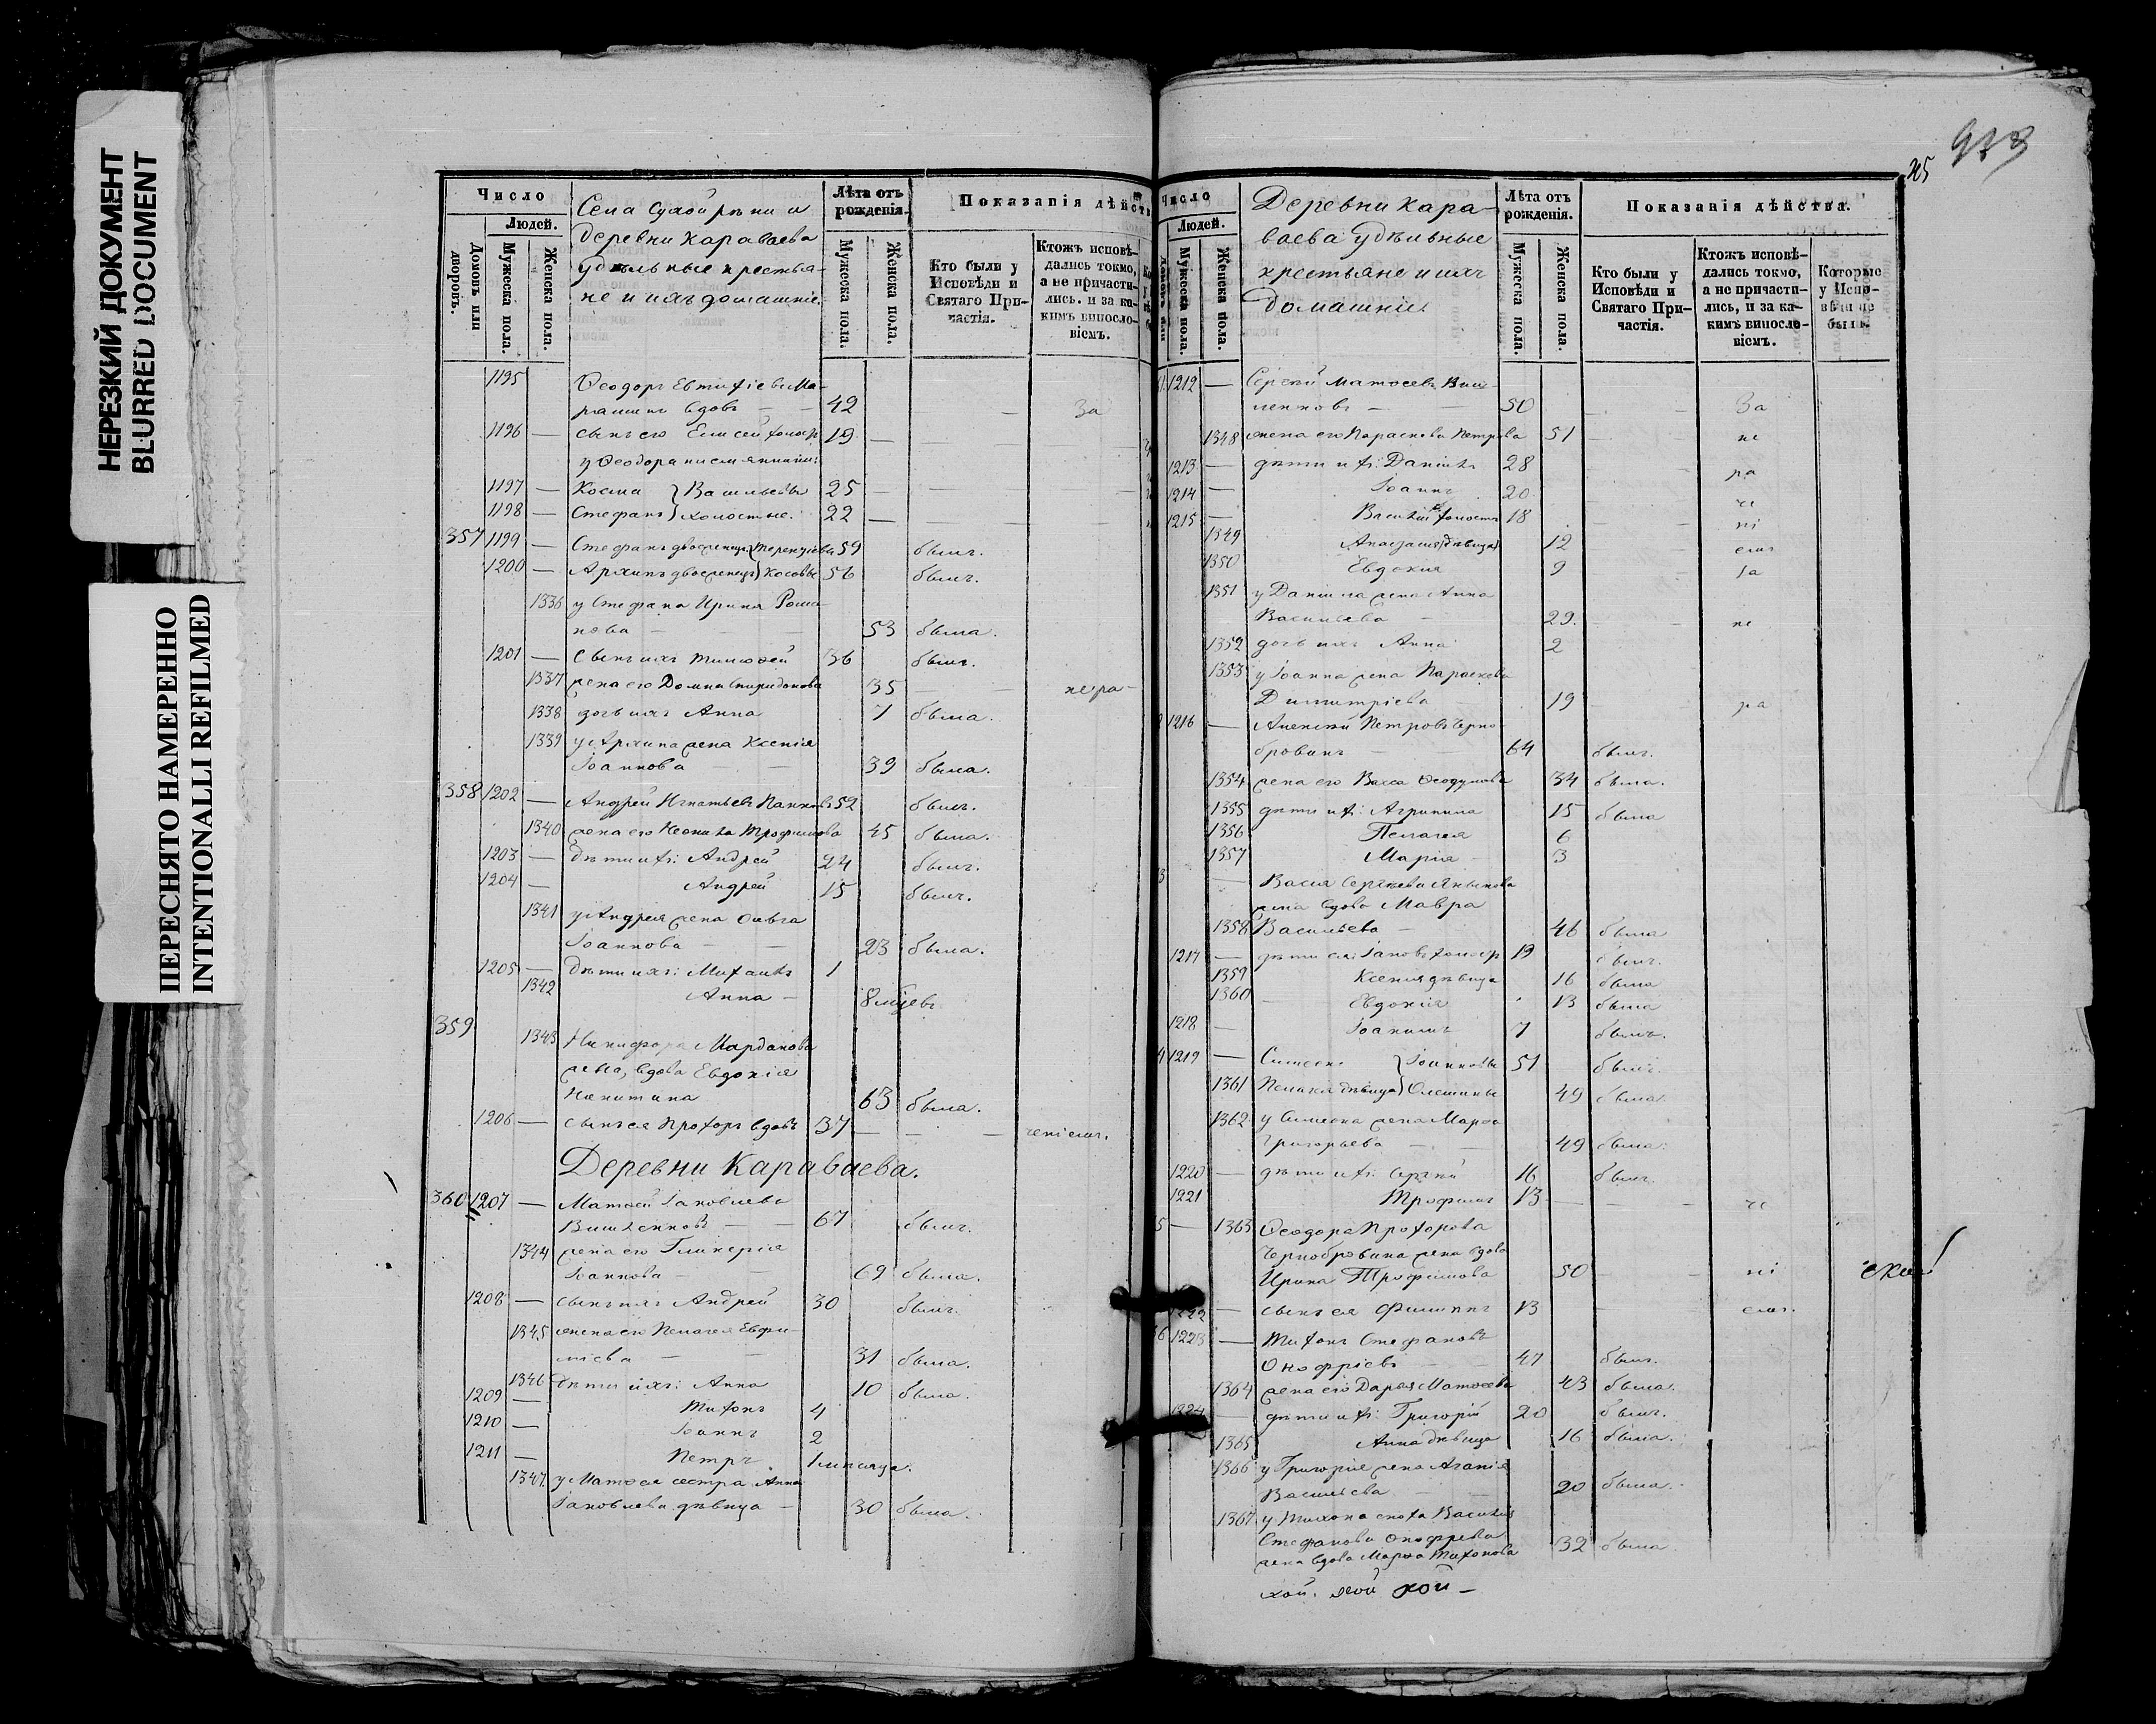 НЕРЕЗКИЙ ДОКУМЕНТ
BLURRED DOCUMENT
ПЕРЕСНЯТО НАМЕРЕННО
INTENTIONALLI REFILMED
Число
Людей.
Домовъ или дворовъ.
Мужеска пола.
Женска пола.
Села Сухой рѣки и
деревни Караваева
удѣльные крестья-
не и ихъ домашніе.
Лѣта отъ рожденія.
Мужеска пола.
Женска пола.
Показанія дѣйст
Кто были у Исповѣди и Святаго Причастія.
Ктожъ исповѣдались токмо, а не причастились. и за какимъ винословіемъ.
1195 Ѳеодоръ Евтихіевъ Ма-
вдовъ — — 42 — за
1196 — сынъ его Елисей холостъ 19 —
у Ѳеодора племянники:
1197 — Косма } Васильевы 25 —
1198 — Стефанъ } холостые. 22 —
357 1199 — Стефанъ двоеженецъ } Терентіевы 59 былъ.
1200 — Архипъ двоеженецъ } Косовы 56 былъ.
1336 у Стефана Ирина Рома-
нова — 53 была.
1201 — сынъ ихъ Тимоѳей 36 былъ.
1337 жена его Домна Спиридонова 35 — нера-
1338 дочь ихъ Анна 7 была.
1339 у Архипа жена Ксенія
Іоаннова — 39 была.
358 1202 — Андрей Игнатьевъ Панковъ 52 былъ.
1340 жена его Неонила Трофимова 45 была.
1203 — дѣти ихъ: Андрей 24 былъ.
1204 — Андрей 15 былъ.
1341 у Андрея жена Ольга
Іоаннова — 23 была.
1205 — дѣти ихъ: Михаилъ 1
1342 Анна — 8 мѣсцевъ
359 1343 Никифора Марданова
жена, вдова Евдокія
Никитина 63 была.
1206 — сынъ ея Прохоръ вдовъ 37 — ченіемъ.
Деревни Караваева.
360 1207 — Матѳей Іаковлевъ
67 былъ.
1344 жена его Гликерія
Іоаннова — 69 была.
1208 — сынъ ихъ Андрей 30 былъ.
1345 жена его Пелагея Евфи-
міева — 31 была.
1346 дѣти ихъ: Анна 10 была.
1209 — Тихонъ 4
1210 — Іоаннъ 2
1211 — Петръ 1 мѣсяца.
1347 у Матѳея сестра Анна
Іаковлева дѣвица — 30 была.
973
Число
Людей.
Мужеска пола.
Женска пола.
Деревни Кара-
ваева удѣльные
крестьяне и ихъ
домашніе
Лѣта отъ рожденія.
Мужеска пола.
Женска пола.
Показанія дѣйства.
Кто были у Исповѣди и Святаго Причастія.
Ктожъ исповѣдались токмо, а не причастились, и за какимъ винословіемъ.
Которые у Исповѣди не были.
1212 — Сергій Матѳеевъ
50 — За
1348 жена его Параскева Петрова 51 — не
1213 — дѣти ихъ: Даніилъ 28 — ра
1214 — Іоаннъ 20 че
1215 — Василій холостъ 18 — ні
1349 Анастасія дѣвица 12 — емъ
1350 Евдокія 9 — за
1351 у Даніила жена Анна
Васильева — 29 — не
1352 дочь ихъ Анна 2
1353 у Іоанна жена Параскева
Димитріева — 19 — ра
1216 — Алексій Петровъ Черно-
бровинъ — 64 былъ.
1354 жена его Васса Ѳеодулова 34 была.
1355 дѣти ихъ: Агрипина 15 была
1356 Пелагея 6
1357 Марія — 3
жена вдова Мавра
1358 Васильева — 46 была
1217 — дѣти ея: Іаковъ холостъ 19 былъ.
1359 Ксенія дѣвица 16 была
1360 Евдокія 13 была
1218 — Іоакимъ 7 былъ.
1219 — Симеонъ } Іоанновы 51 былъ.
1361 Пелагея дѣвица } Олешины 49 была.
1362 у Симеона жена Марѳа
Григорьева — 49 была.
1220 — дѣти ихъ: Сергій 16 былъ.
1221 Трофимъ 13 — че
1363 Ѳеодора Прохорова
Чернобровина жена вдова
Ирина Трофимова 50 — ні
1222 — сынъ ея Филиппъ 13 емъ.
1223 — Тихонъ Стефановъ
Онофріевъ — 47 былъ.
1364 жена его Дарья Матѳеева 43 была.
1224 — дѣти ихъ: Григорій 20 былъ.
1365 Анна дѣвица 16 была.
1366 у Григорія жена Агапія
Васильева — 20 была.
1367 у Тихона сноха Василія
Стефанова Онофріева
жена вдова Марѳа Тихонова 32 была